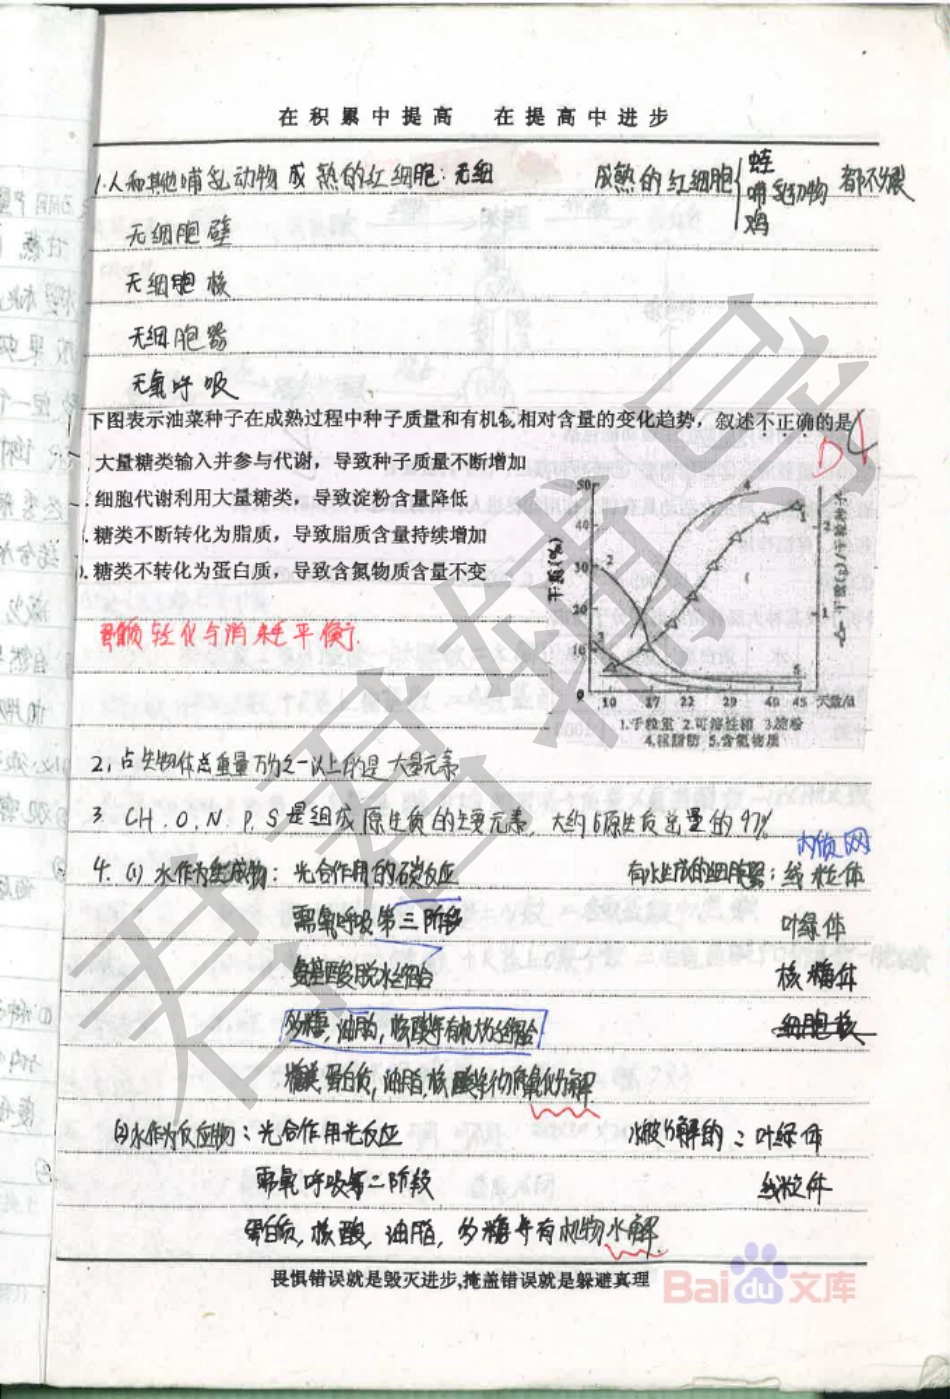 在积累中提高 在提高中进步
1.人和其他哺乳动物成熟的红细胞:无细 成熟的红细胞{蛙 哺乳动物 鸡 都不分裂
无细胞壁
无细胞核
无细胞器
无氧呼吸
下图表示油菜种子在成熟过程中种子质量和有机物相对含量的变化趋势,叙述不正确的是(
D
大量糖类输入并参与代谢,导致种子质量不断增加
细胞代谢利用大量糖类,导致淀粉含量降低
糖类不断转化为脂质,导致脂质含量持续增加
糖类不转化为蛋白质,导致含氮物质含量不变
转化与消耗平衡
干质(%)
50
40
30
20
10
0
10 17 22 29 40 45 天数/d
1.千粒重 2.可溶性糖 3.淀粉
4.粗脂肪 5.含氮物质
2,占生物体总重量万分之一以上的是大量元素
3. C H . O , N . P , S 是组成原生质的主要元素, 大约占原生质总量的97%
内质网
4. (1) 水作为生成物: 光合作用的碳反应 有水生成的细胞器: 线粒体
需氧呼吸第三阶段 叶绿体
氨基酸脱水缩合 核糖体
多糖,油脂,核酸等有机物缩合 细胞核
糖类,蛋白质,油脂,核酸等彻底氧化分解
(2)水作为反应物:光合作用光反应 水被分解的:叶绿体
需氧呼吸第二阶段 线粒体
蛋白质,核酸,油脂,多糖等有机物水解.
畏惧错误就是毁灭进步,掩盖错误就是躲避真理
Baidu文库
君君辅导